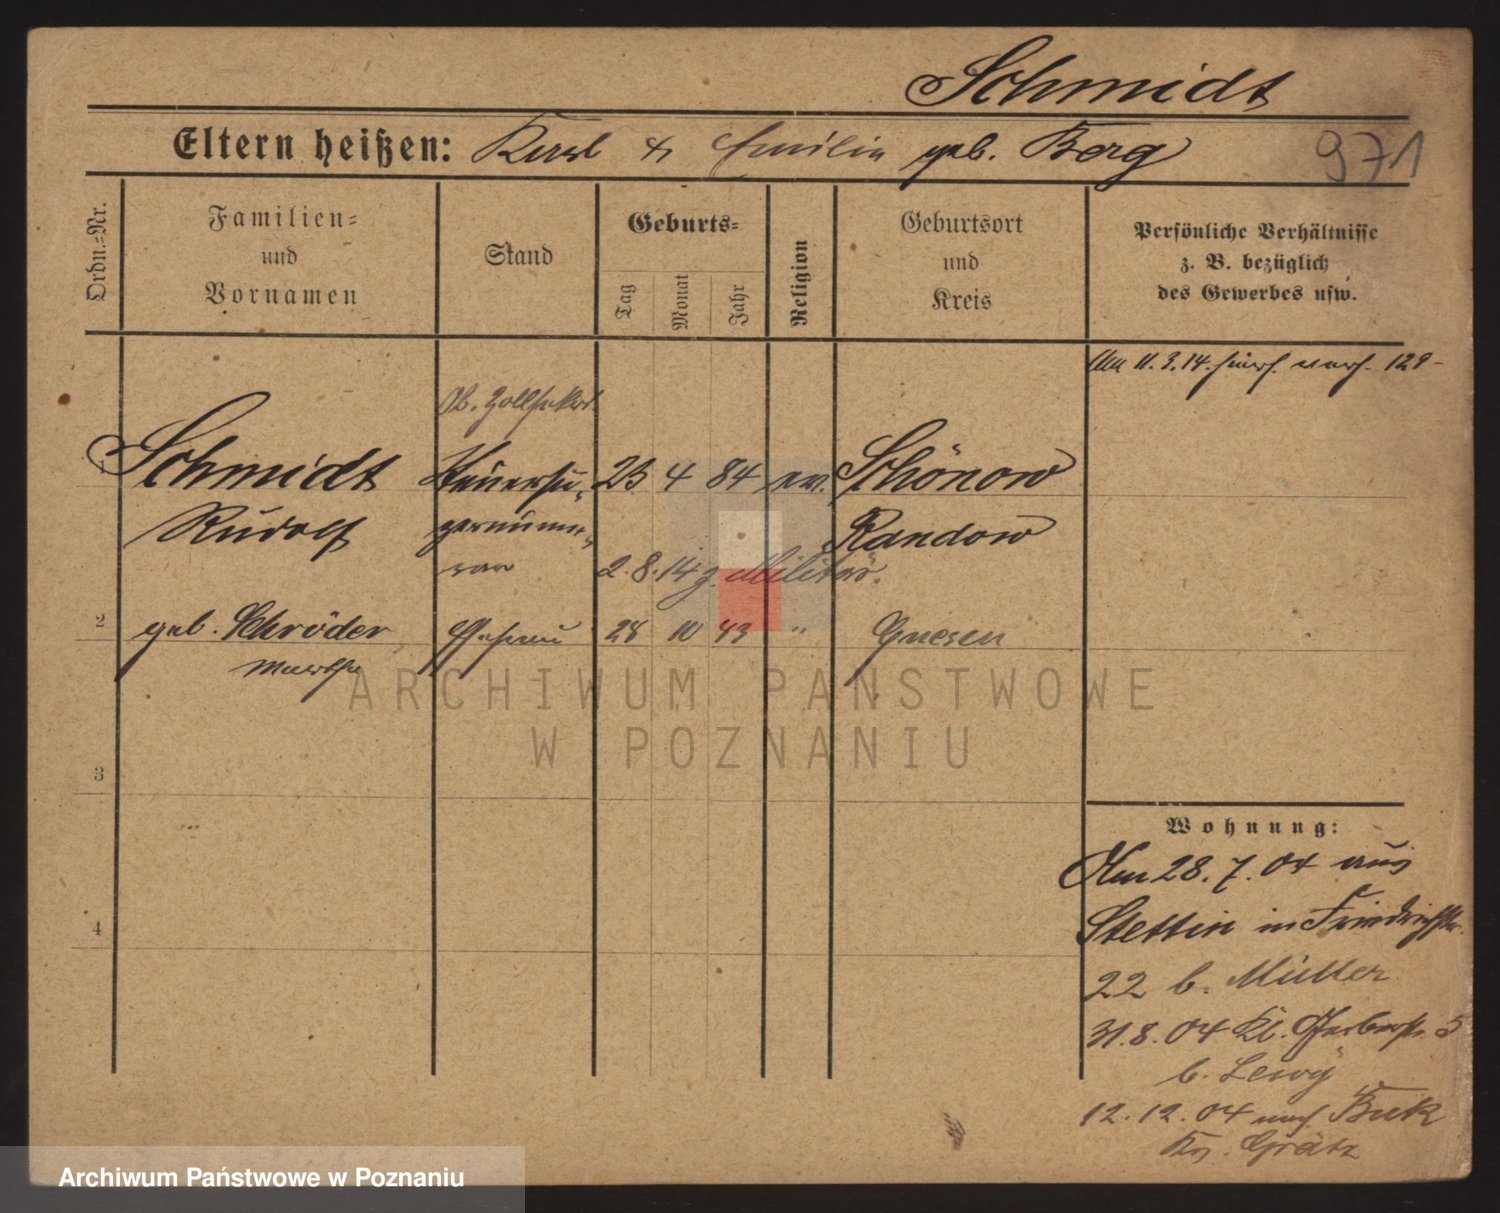 Schmidt
Eltern heißen: Karl & Emilie geb. Berg
971
Ordn.=Nr.
Familien=
und
Vornamen
Stand
Geburts=
Tag
Monat
Jahr
Religion
Geburtsort
und
Kreis
Persönliche Verhältnisse
z. B. bezüglich
des Gewerbes usw.
11.3.14. 129
Ob. Zollsekr.
1 Schmidt Steuersu= 23 4 84 ev. Schönow
Rudolf pernume= Randow
rar 2.8.14 z. Militär.
2 geb. Schröder Ehefrau 28 10 83 " Gnesen
Martha
ARCHIWUM PAŃSTWOWE
W POZNANIU
3
4
Wohnung:
Am 28.7.04 aus
Stettin in Friedrichstr.
22 b. Müller
31.8.04 Kl. Gerberstr. 5
b. Lewy
12.12.04 nach Buk
Kr. Grätz
Archiwum Państwowe w Poznaniu